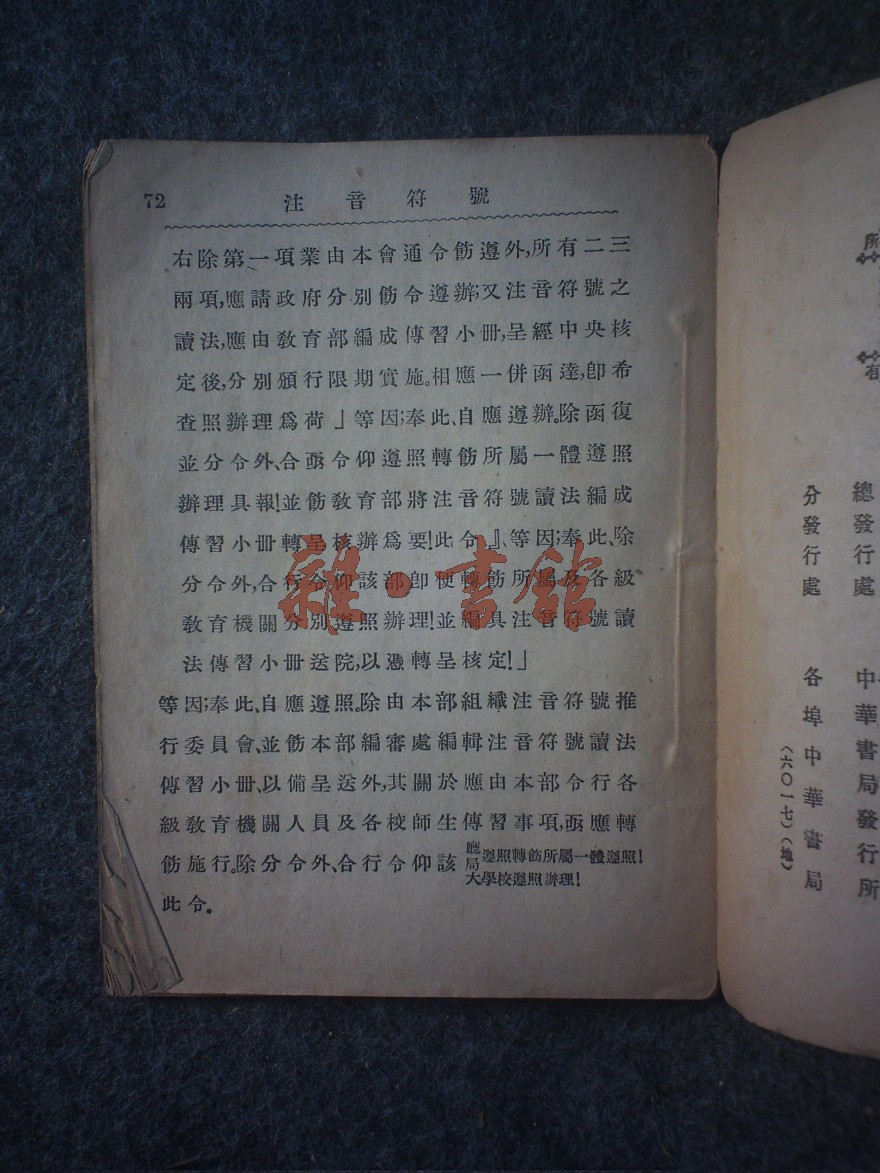 72 注音符號
右除第一項業由本會通令飭遵外,所有二三
兩項,應請政府分別飭令遵辦;又注音符號之
讀法,應由敎育部編成傳習小冊,呈經中央核
定後,分別頒行限期實施。相應一併函達,卽希
查照辦理爲荷」等因;奉此、自應遵辦。除函復
並分令外、合亟令仰遵照轉飭所屬一體遵照
辦理具報!並飭敎育部將注音符號讀法編成
傳習小冊轉呈核辦爲要!此令』、等因;奉此、除
分令外,合行令仰該部卽便轉飭所屬及各級
敎育機關分別遵照辦理!並編具注音符號讀
法傳習小冊送院,以憑轉呈核定!」
等因;奉此、自應遵照。除由本部組織注音符號推
行委員會、並飭本部編審處編輯注音符號讀法
傳習小冊、以備呈送外,其關於應由本部令行各
級敎育機關人員及各校師生傳習事項,亟應轉
飭施行。除分令外、合行令仰該
廳局遵照轉飭所屬一體遵照!
大學校遵照辦理!
此令。
雜·書館
所
有
總發行處 中華書局發行所
分發行處 各埠中華書局
(六〇一七)(地)